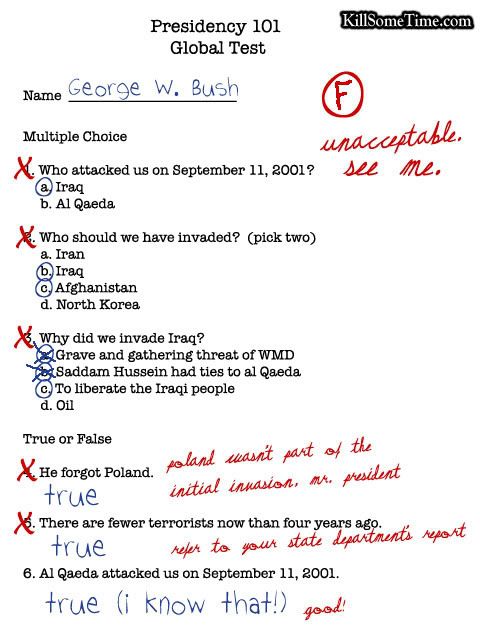 KillSomeTime.com
Presidency 101
Global Test
Name George W. Bush
F
unacceptable.
see me.
Multiple Choice
1. Who attacked us on September 11, 2001?
a. Iraq
b. Al Qaeda
2. Who should we have invaded? (pick two)
a. Iran
b. Iraq
c. Afghanistan
d. North Korea
3. Why did we invade Iraq?
a. Grave and gathering threat of WMD
b. Saddam Hussein had ties to al Qaeda
c. To liberate the Iraqi people
d. Oil
True or False
4. He forgot Poland.
true
poland wasn't part of the
initial invasion, mr. president
5. There are fewer terrorists now than four years ago.
true
refer to your state department's report
6. Al Qaeda attacked us on September 11, 2001.
true (i know that!)
good!